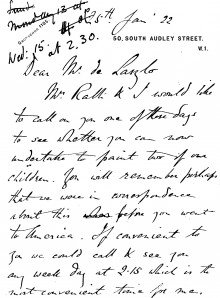 25th Jan' 22
Monday 13 at
Wed. 15 at 2.30.
50, SOUTH AUDLEY STREET,
W.1.
Dear Mr. de Laszlo
Mrs Ralli & I would like
to call on you one of these days
to see whether you can now
undertake to paint two of our
children. You will remember perhaps
that we were in correspondence
about this when before you went
to America. If convenient to
you we could call & see you
any week day at 2.15 which is the
most convenient time for me.